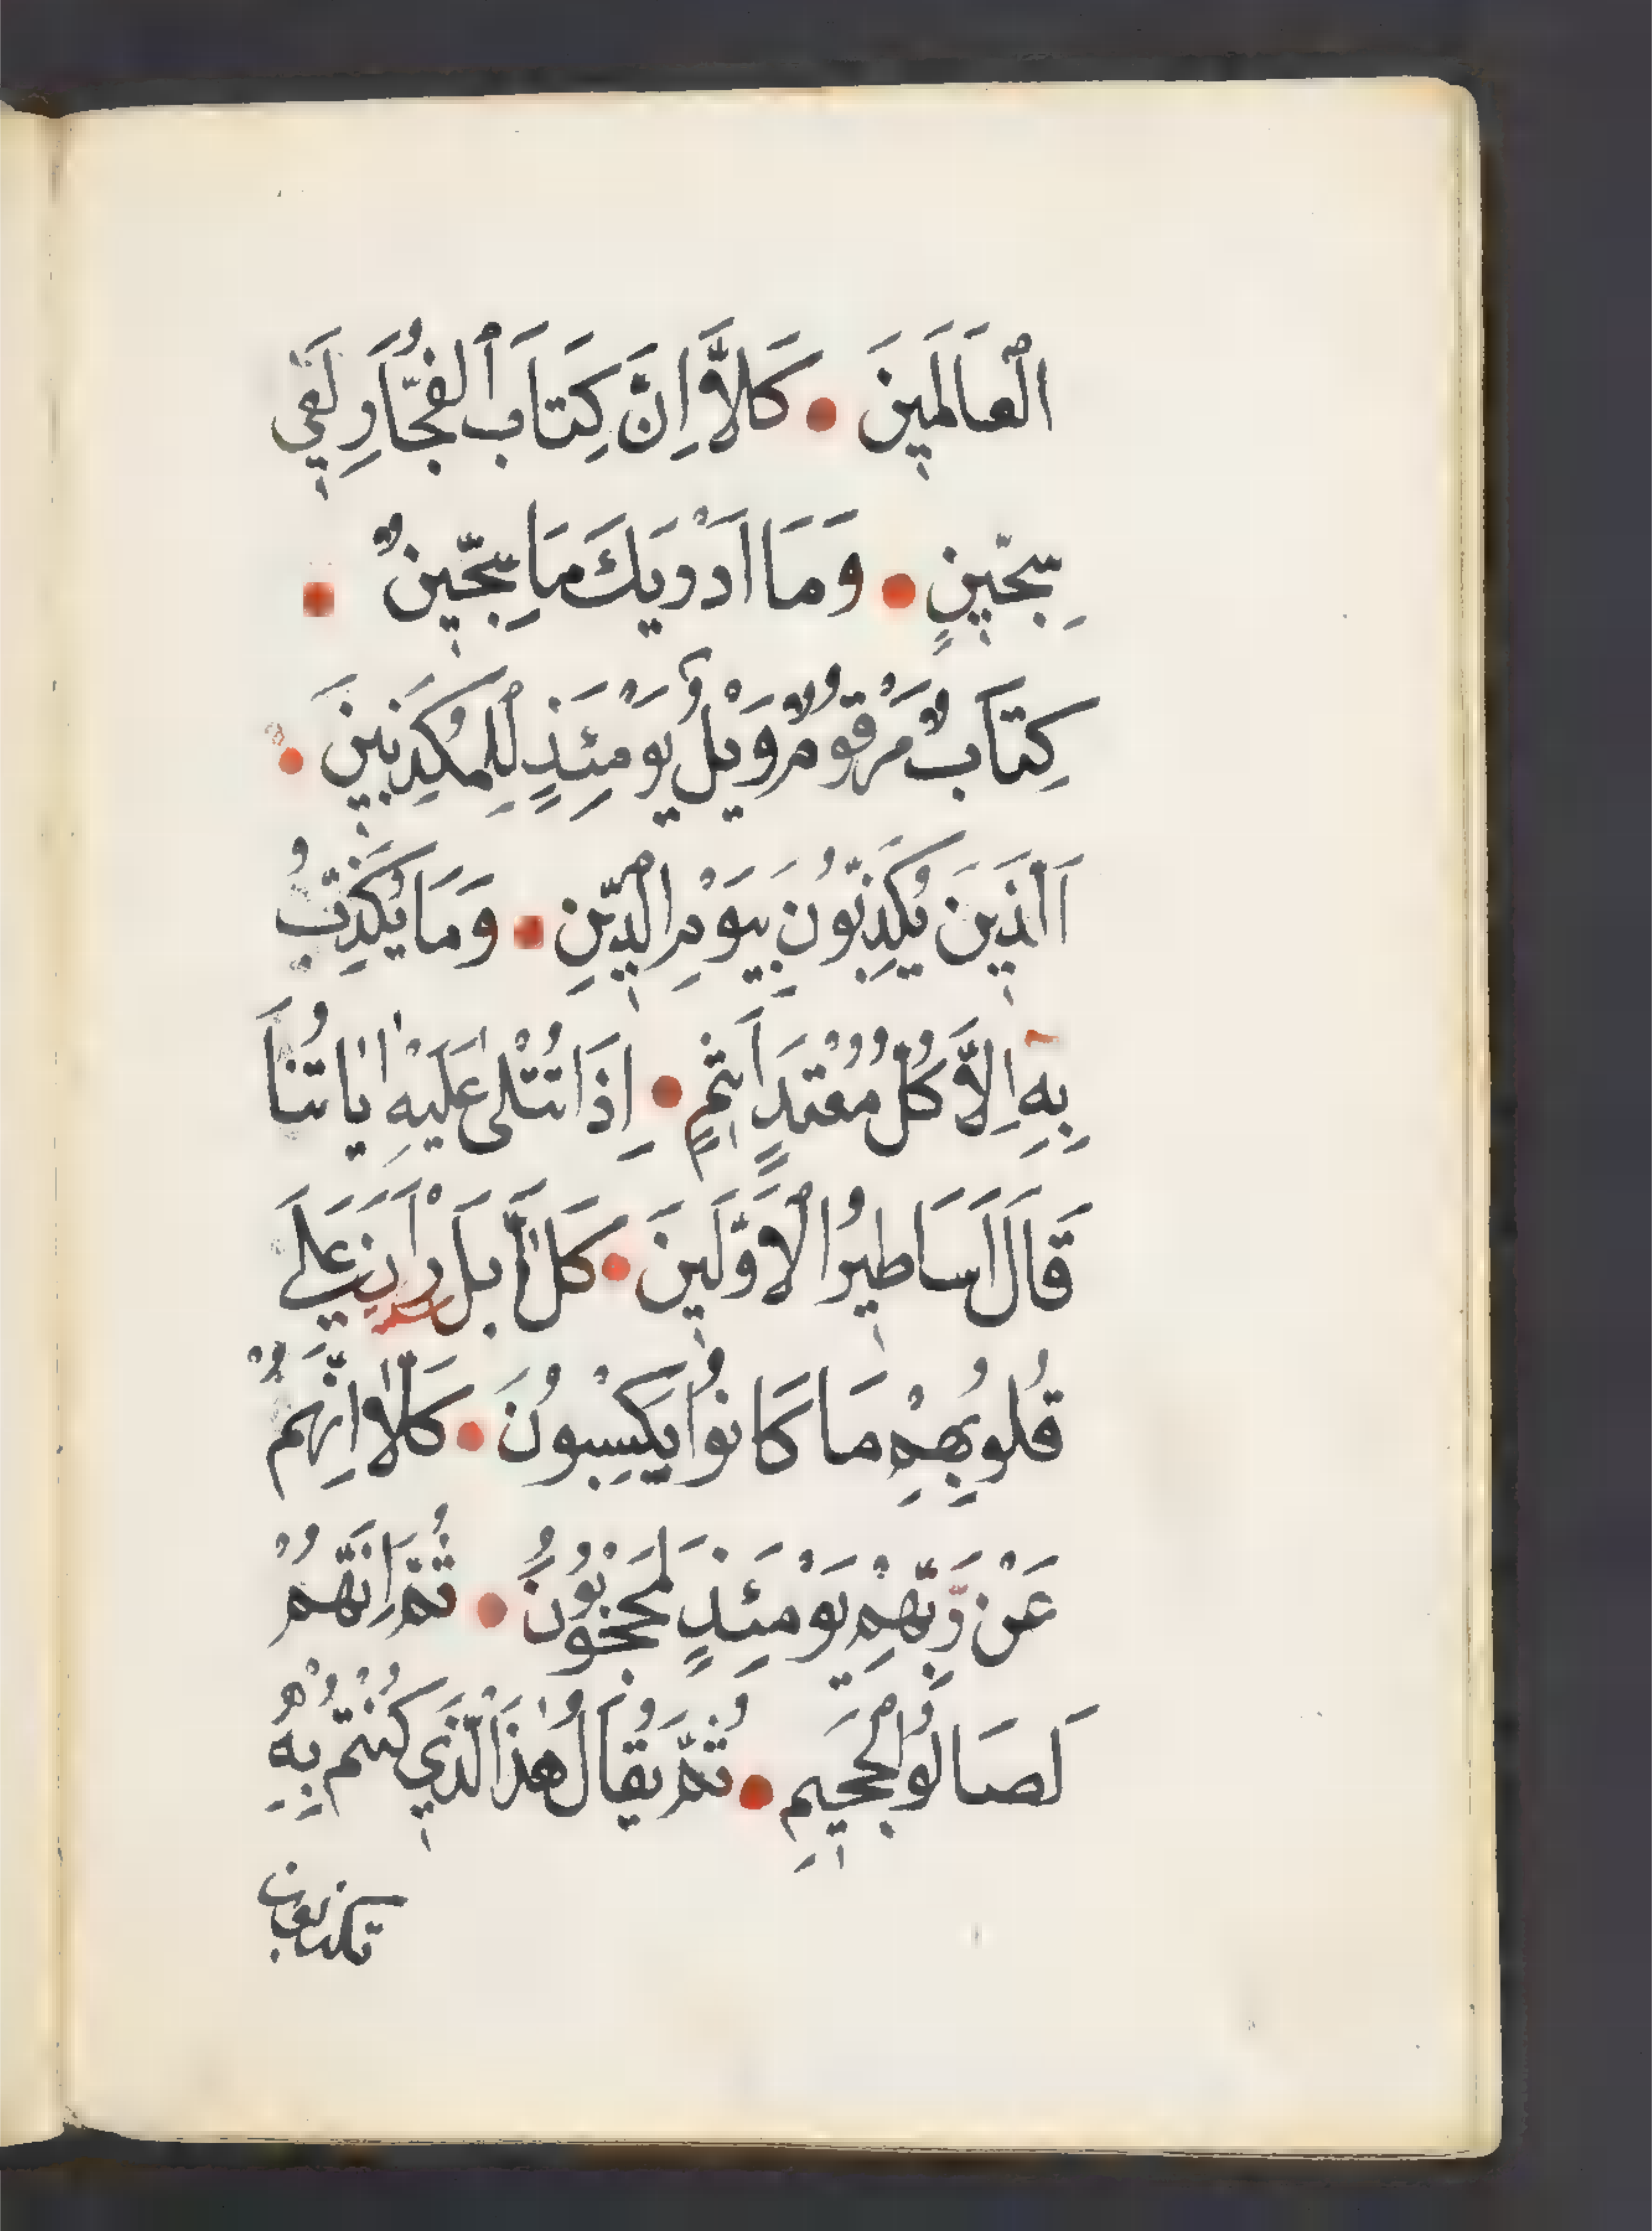 الْعَالَمِينَ ● كَلَّا اِنَّ كِتَابَ ٱلفُجَّارِ لَفِي
سِجِّينٍ ● وَمَا اَدْرٰيكَ مَا سِجِّينٌ ●
كِتَابٌ مَرْقُومٌ وَيْلٌ يَوْمَئِذٍ لِلْمُكَذِّبِينَ ●
اَلَّذِينَ يُكَذِّبُونَ بِيَوْمِ الدِّينِ ● وَمَا يُكَذِّبُ
بِهِٓ اِلَّا كُلُّ مُعْتَدٍ اَثِيمٍ ● اِذَا تُتْلٰى عَلَيْهِ اٰيَاتُنَا
قَالَ اَسَاطِيرُ الْاَوَّلِينَ ● كَلَّا بَلْ رَانَ عَلٰى
قُلُوبِهِمْ مَا كَانُوا يَكْسِبُونَ ● كَلَّا اِنَّهُمْ
عَنْ رَبِّهِمْ يَوْمَئِذٍ لَمَحْجُوبُونَ ● ثُمَّ اِنَّهُمْ
لَصَالُوا الْجَحِيمِ ● ثُمَّ يُقَالُ هٰذَا الَّذِي كُنْتُمْ بِهِ
تكذبون